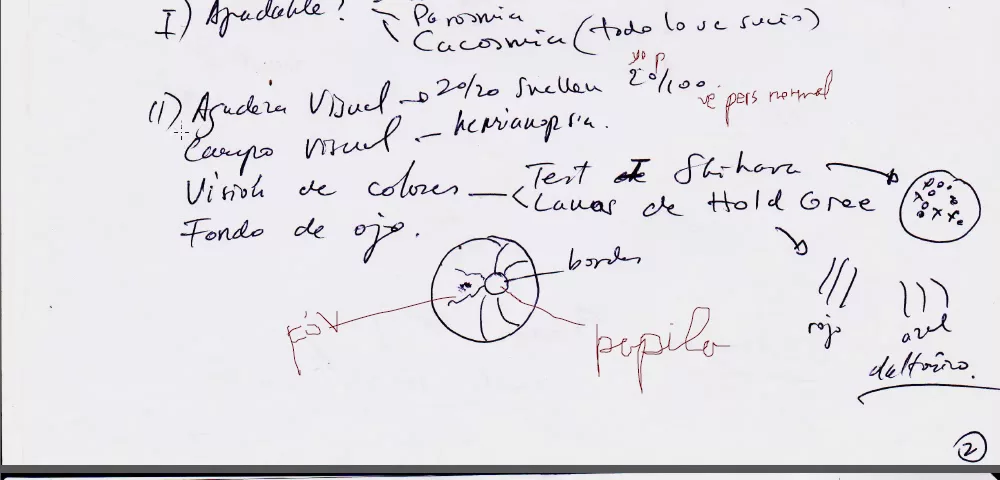 I) Agudable?
Parosmia
Cacosmia (todo lo ve sucio)
II) Agudeza Visual → 20/20 Snellen 20/100
yo p
ve pers normal
Campo visual — hemianopsia.
Visión de colores — Test de Ishihara
Lanas de Hold Gree
Fondo de ojo.
bordes
fóv
papila
rojo
azul
daltónico.
2